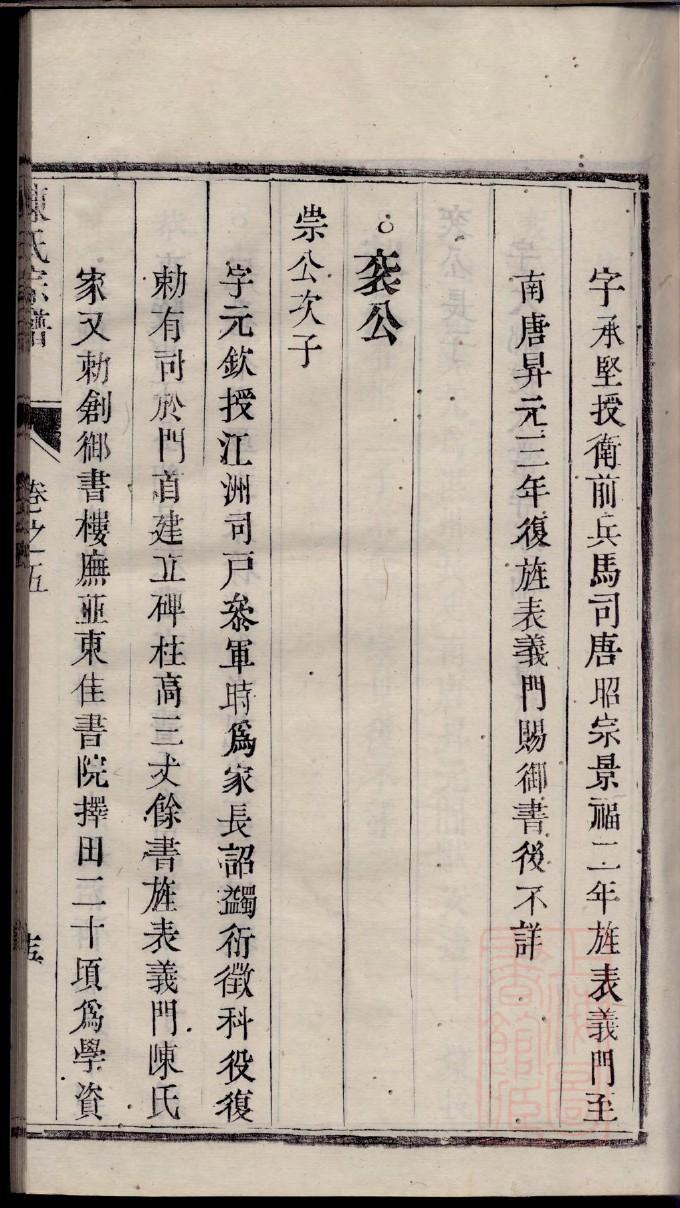 字承堅授衛前兵馬司唐昭宗景福二年旌表義門至
南唐昇元三年復旌表義門賜御書後不詳
○袞公
崇公次子
字元欽授江洲司戶叅軍時爲家長詔蠲衍徵科役復
勅有司於門首建立碑柱高三丈餘書旌表義門陳氏
家又勅創御書樓廡並東佳書院擇田二十頃爲學資
陳氏宗譜
卷之五